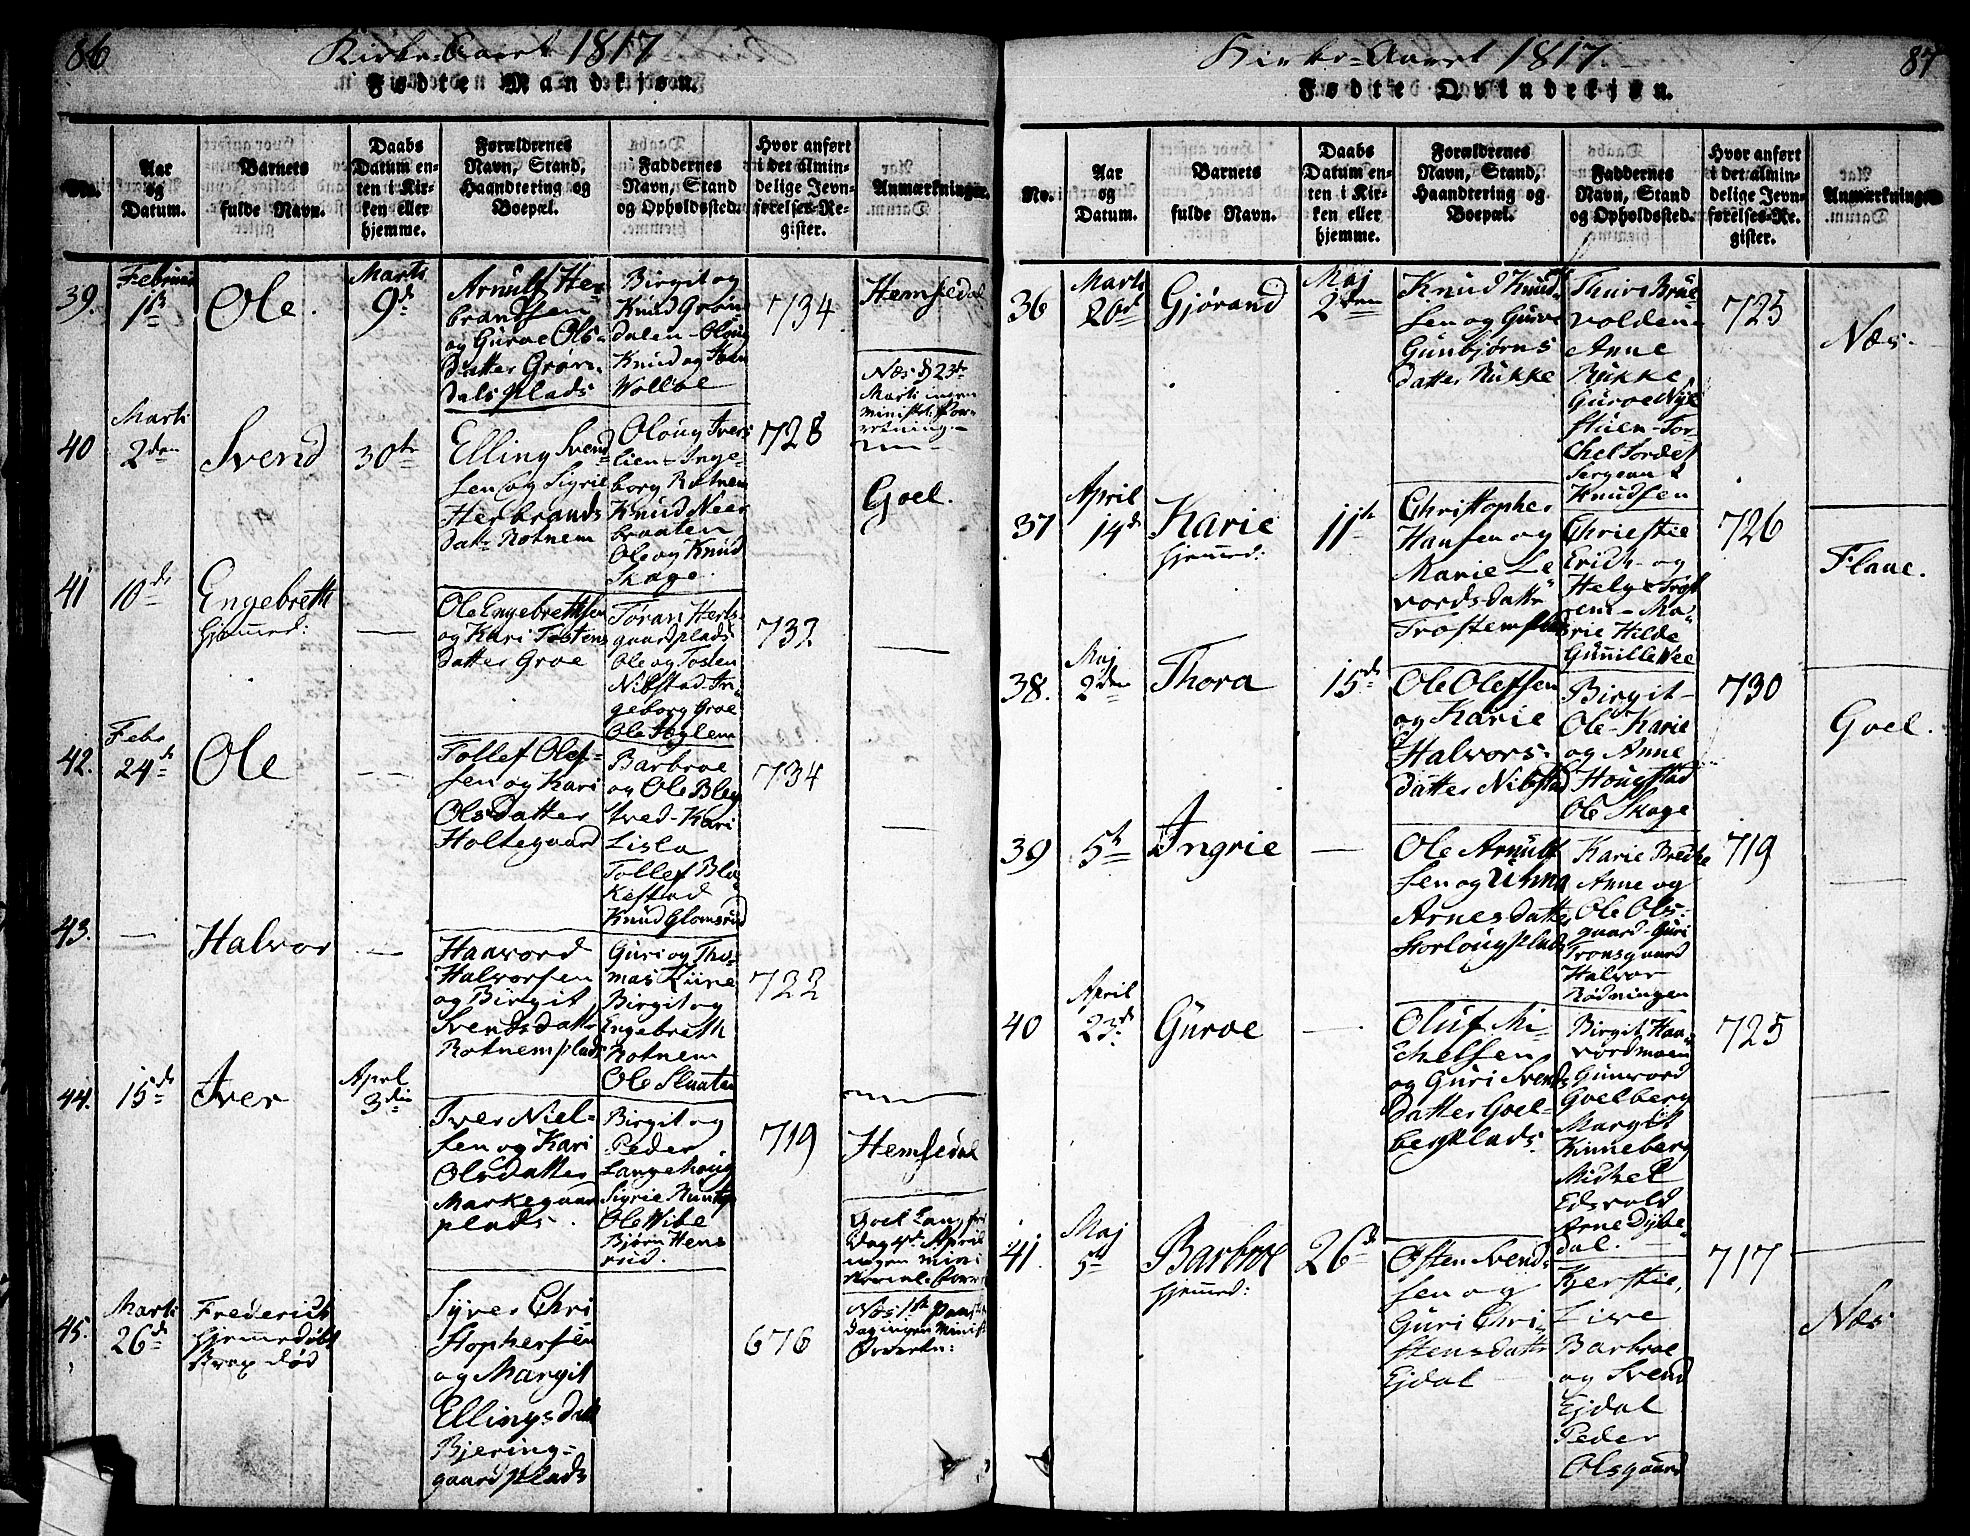 86
Kirke-Aaret 1817
Fødte Mandkjøn.
No.
Aar
og
Datum.
Barnets
fulde Navn.
Daabs
Datum en-
ten i Kir-
ken eller
hjemme.
Forældrenes
Navn, Stand,
Haandtering og
Boepæl.
Faddernes
Navn, Stand
og Opholdssted.
Hvor anført
i det almin-
delige Jevn-
førelses-Re-
gister.
Anmærkninger.
39.
Februar
Ole.
Marti
9d
Arnulf Her-
brandsen
og Gurve Ols-
datter Grøn-
dals plads
Birgit og
Knud Grøn-
dalen - Oloug
Knud og
734
Hemsedal
Næs d 23de
Marti ingen
40
Marti
2den
Svend
30te
Elling Svend-
sen og Sigrie
Herbrands
Datr Rotnem
Oloug Ivers-
lien - Inge-
borg Rotnem
Knud Neer-
braaten
Ole og Knud
Skage.
728
Goel.
41
10de
Engebreth
hjemmed:
—
Ole Engebrethsen
og Kari Tostens
datter Groe
plads
Ole og Tosten
Nibstad In-
geborg Groe
732
—
42.
Febr
24de
Ole
—
Tollef Olef-
sen og Kari
Olsdatter
Holtegaard
Barbroe
og Ole Bleg-
Kari
Lisla
Tollef
Knud Glomsrud
734
—
43.
—
Halvor
—
Haavord
Halvorsen
og Birgit
Svendsdatter
Rotnemplads
Guri og Tho-
mas
Birgit og
Engebreth
Rotnem
Ole Slaaten
722
44.
15de
Iver
April
3die
Iver Niel-
sen og Kari
Olsdatter
Markegaard
plads.
Birgit og
Peder
Langehoug
Sigrie
Ole Wibe
Bjørn
719
Hemsedal
Goel Langfre
Dag 4de April
ingen mini-
45.
Marti
26de
Frederich
hjemmedøbt
strax død
Syver Chri-
stophersen
og Margit
Ellingsdatt
Bjering-
gaardplads
676
87
Kirke-Aaret 1817.
Fødte Qvindekjøn.
No.
Aar
og
Datum.
Barnets
fulde Navn.
Daabs
Datum en-
ten i Kir-
ken eller
hjemme.
Forældrenes
Navn, Stand,
Haandtering og
Boepæl.
Faddernes
Navn, Stand
og Opholdssted.
Hvor anført
i det almin-
delige Jevn-
førelses-Re-
gister.
Anmærkninger
36
Marti
26d
Gjørand
Maj
2den
Knud Knud-
sen og Gurve
Gunbjørns
datter Rukke
Thure Brue-
volden
Anne
Rukke
Gurve Nye-
stuen - Tor-
Sergeant
Knudsen
725
Næs.
37
April
14d
Karie
hjemmed:
11te
Christopher
Hansen og
Marie Le-
vordsdatter
Christie
Erich - og
Helge
Marie Hilde
Gunnille
726
Flaae.
38.
Maj
2den
Thora
15de
Ole Olefsen
og Karie
Halvors-
datter Nibstad
Birgit -
Ole - Karie
og Anne
Hougstad
Ole Skage
730
Goel.
39
5te
Ingrie
—
Ole Arnulf-
sen og Unna
Arnesdatter
Storlougplads
Karie
Anne og
Ole Ols-
gaard - Guri
Tronsgaard
Halvor
Rødningen
719
—
40
April
23d
Gurve
—
Oluf Mi-
chelsen
og Guri Svends
datter Goel-
bergplads
Birgit Haa-
vordmoen
Gunvord
Goelberg
Margit
Kinneberg
Michel
Edsvold
Arne
725
—
41.
Maj
5te
Barbroe
hjemmed:
26d
Østen Svend-
sen og
Guri Chri-
stensdatter
Ejdal
Kerstie,
Live
Barbroe
og Svend
Ejdal
Peder
Olsgaard
717
Næs